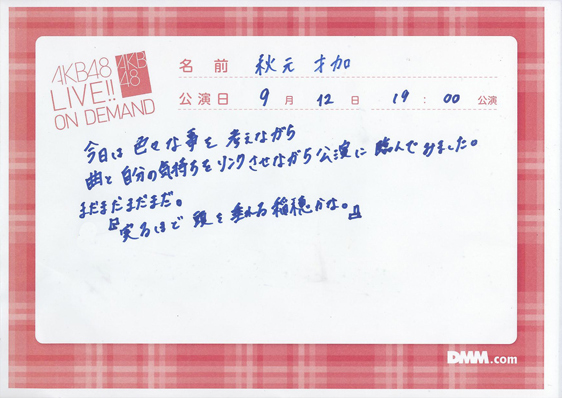 AKB48
LIVE!!
ON DEMAND
AKB
48
名前 秋元 才加
公演日 9月 12日 19:00 公演
今日は 色々な事を 考えながら
曲と自分の気持ちをリンクさせながら公演に 臨んでみました。
まだまだまだまだ。
『実るほど 頭を垂れる 稲穂かな。』
DMM.com